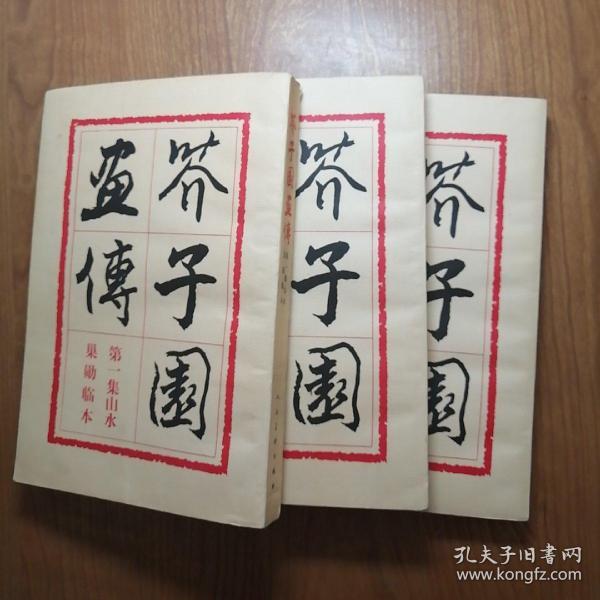 芥子園
畫傳
第一集山水
巢勛临本
芥子園畫傳
芥子園
芥子園
孔夫子旧书网
www.kongfz.com